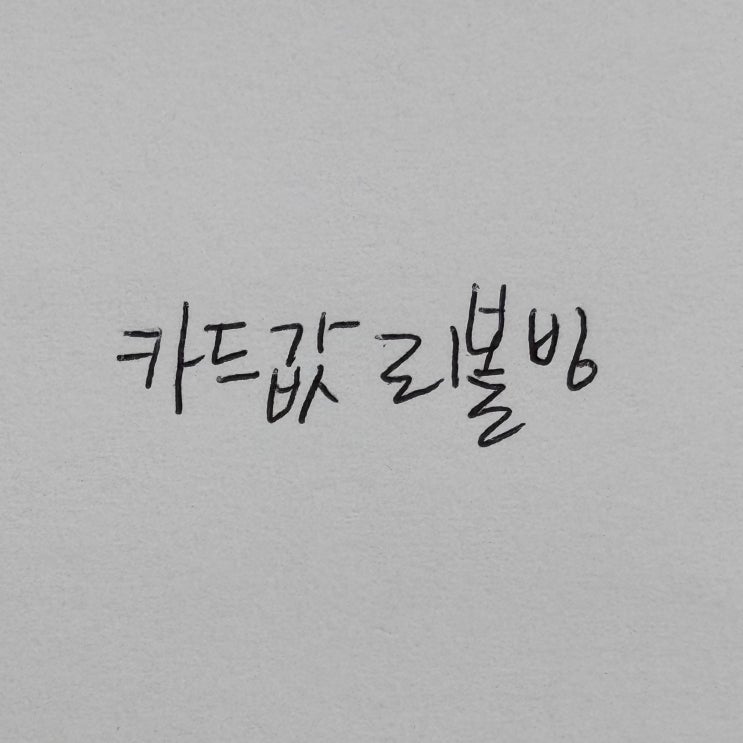 카드값 리볼빙